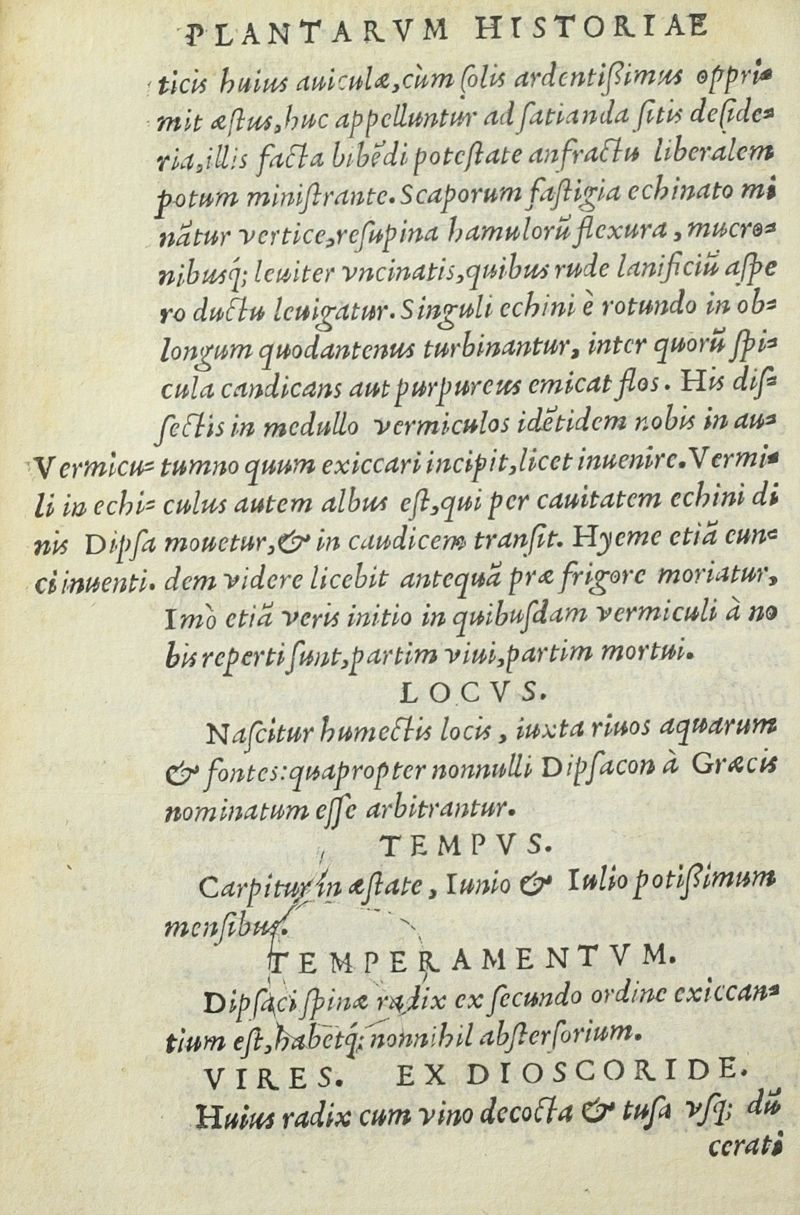 PLANTARVM HISTORIAE
ticis huius auiculæ, cùm ſolis ardentiſsimus oppri-
mit æſtus, huc appelluntur ad ſatianda ſitis deſide-
ria, illis facta bibēdi poteſtate anfractu liberalem
potum miniſtrante. Scaporum faſtigia echinato mi
nātur vertice, reſupina hamulorū flexura, mucro-
nibusq́; leuiter vncinatis, quibus rude lanificiū aſpe
ro ductu leuigatur. Singuli echini è rotundo in ob-
longum quodantenus turbinantur, inter quorū ſpi-
cula candicans aut purpureus emicat flos. His diſ-
ſectis in medullo vermiculos idētidem nobis in au-
Vermicu- tumno quum exiccari incipit, licet inuenire. Vermi-
li in echi- culus autem albus eſt, qui per cauitatem echini di
nis Dipſa mouetur, & in caudicem tranſit. Hyeme etiā eun-
ci inuenti. dem videre licebit antequā præ frigore moriatur,
Imò etiā veris initio in quibuſdam vermiculi à no
bis reperti ſunt, partim viui, partim mortui.
LOCVS.
Naſcitur humectis locis, iuxta riuos aquarum
& fontes: quapropter nonnulli Dipſacon à Græcis
nominatum eſſe arbitrantur.
TEMPVS.
Carpitur in æſtate, Iunio & Iulio potiſsimum
menſibus.
TEMPERAMENTVM.
Dipſaci ſpinæ radix ex ſecundo ordine exiccan-
tium eſt, habetq́; nonnihil abſterſorium.
VIRES. EX DIOSCORIDE.
Huius radix cum vino decocta & tuſa vſq; dū
cerati